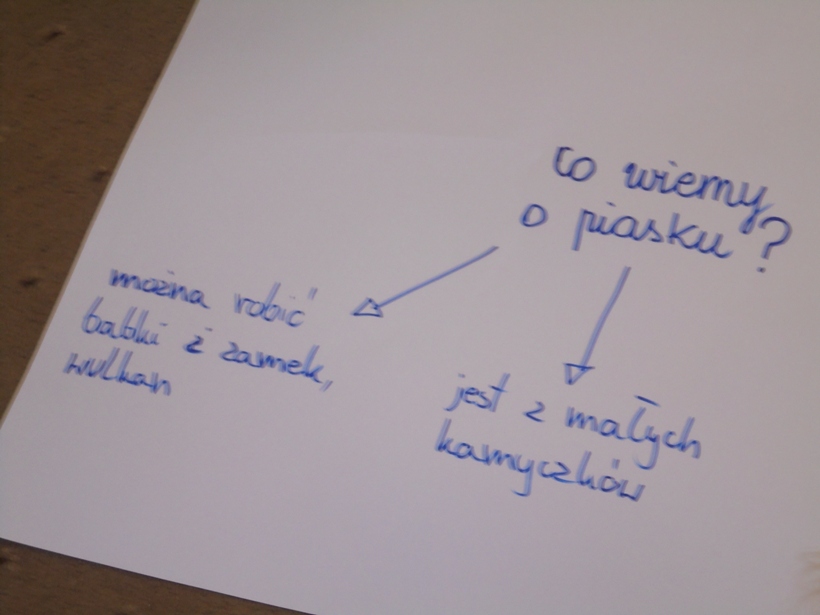 co wiemy
o piasku?
można robić
babki i zamek,
wulkan
jest z małych
kamyczków